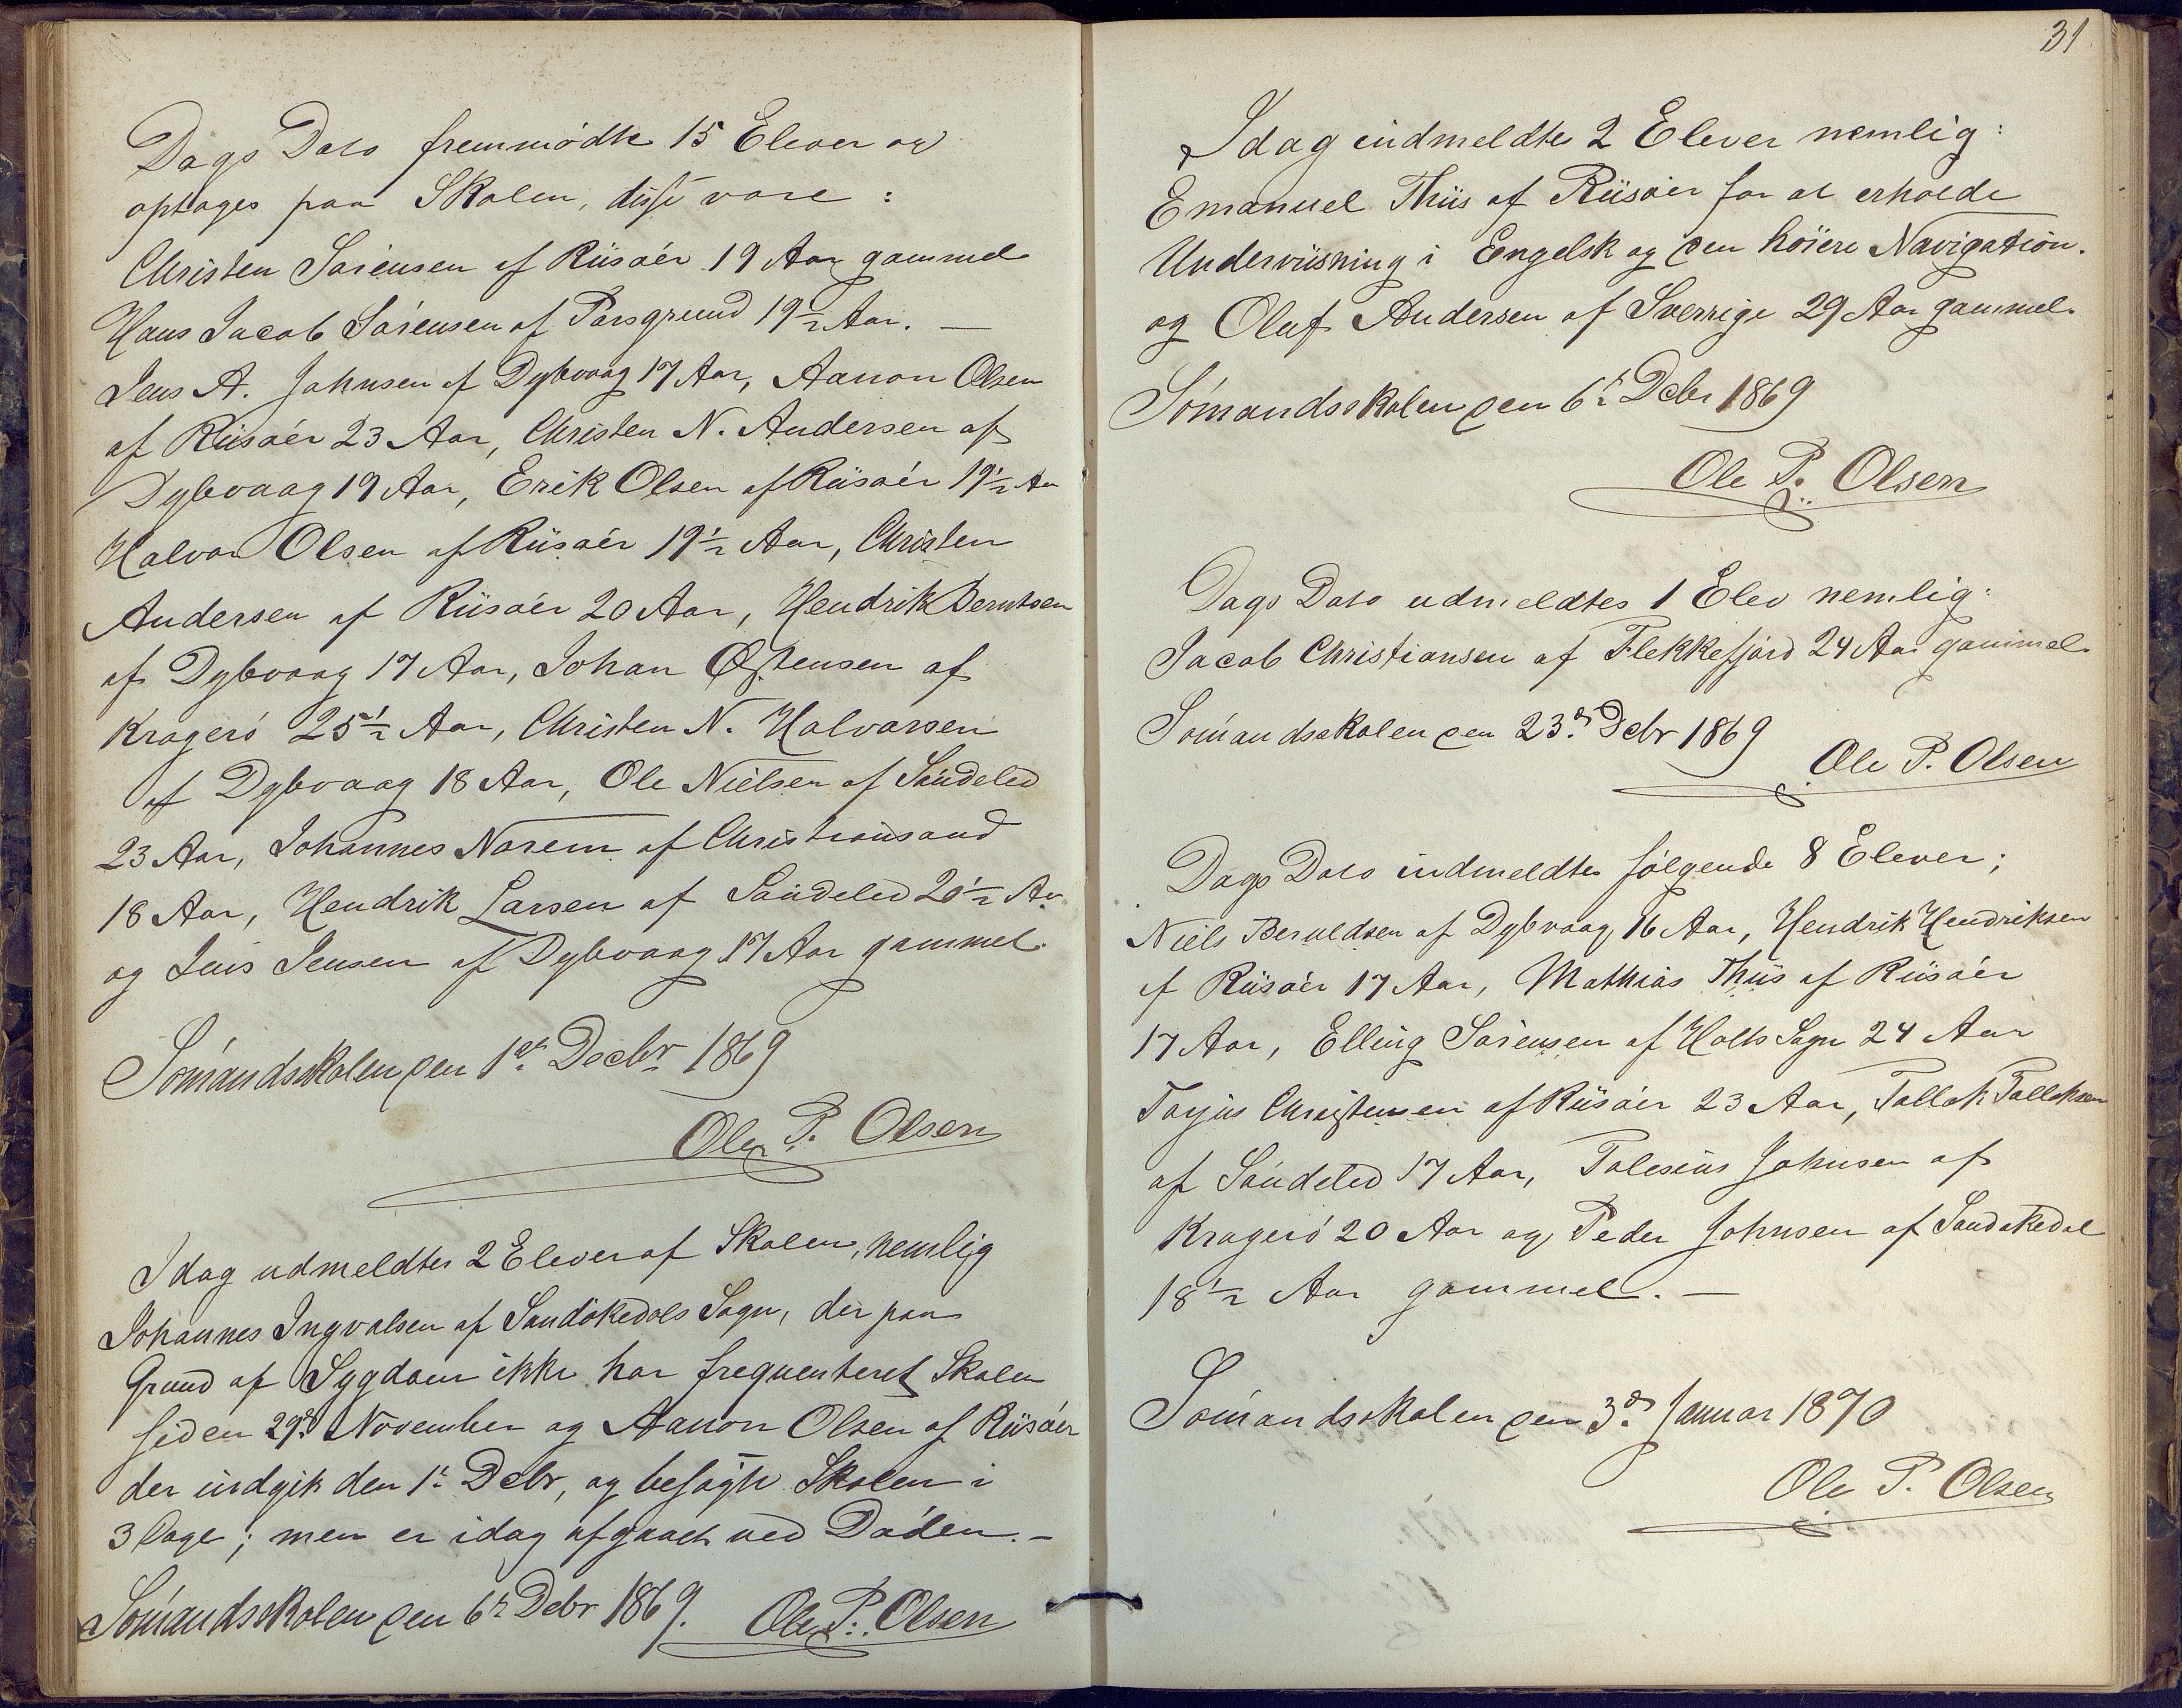 Dags Dato fremmødte 15 Elever og
optages paa Skolen, disse vare :
Christen Sørensen af Riisøer 19 Aar gammel
Hans Jacob Sørensen af Porsgrund 19½ Aar. —
Jens A. Johnsen af Dybvaag 17 Aar, Aanon Olsen
af Riisøer 23 Aar, Christen N. Andersen af
Dybvaag 19 Aar, Erik Olsen af Riisøer 19½ Aar
Halvor Olsen af Riisøer 19½ Aar, Christen
Andersen af Riisøer 20 Aar, Hendrik Berntsen
af Dybvaag 17 Aar, Johan Østensen af
Kragerø 25½ Aar, Christen N. Halvorsen
af Dybvaag 18 Aar, Ole Nielsen af Søndeled
23 Aar, Johannes Norem af Christiansand
18 Aar, Hendrik Larsen af Søndeled 20½ Aar
og Jens Jensen af Dybvaag 17 Aar gammel.
Sømandsskolen den 1ste Decbr 1869
Ole P. Olsen
Idag udmeldtes 2 Elever af Skolen, nemlig
Johannes Ingvalsen af Sandøkedals Sogn, der paa
Grund af Sygdom ikke har frequenteret Skolen
siden 29de November og Aanon Olsen af Riisøer
der indgik den 1ste Debr, og besøgte Skolen i
3 Dage; men er idag afgaaet ved Døden. —
Sømandsskolen den 6te Debr 1869. Ole P. Olsen
31
Idag indmeldtes 2 Elever nemlig:
Emanuel Thiis af Riisøer for at erholde
Underviisning i Engelsk og den høiere Navigation.
og Oluf Andersen af Sverrige 29 Aar gammel.
Sømandsskolen den 6te Debr 1869
Ole P. Olsen
Dags Dato udmeldtes 1 Elev nemlig:
Jacob Christiansen af Flekkefjord 24 Aar gammel.
Sømandsskolen den 23de Debr 1869
Ole P. Olsen
Dags Dato indmeldtes følgende 8 Elever;
Niels Beruldsen af Dybvaag 16 Aar, Hendrik Hendriksen
af Riisøer 17 Aar, Mathias Thiis af Riisøer
17 Aar, Elling Sørensen af Holts Sogn 24 Aar
Torjus Christensen af Riisøer 23 Aar, Tallak Tallaksen
af Søndeled 17 Aar, Tolesius Johnsen af
Kragerø 20 Aar og Peder Johnsen af Sandøkedal
18½ Aar gammel. —
Sømandsskolen den 3de Januar 1870
Ole P. Olsen